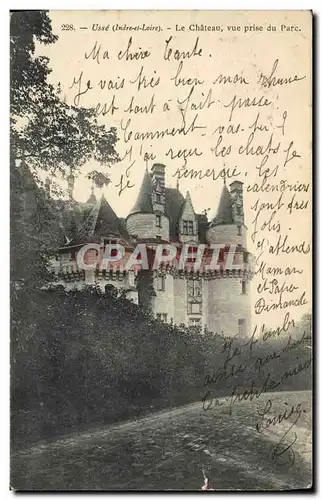 228. - Ussé (Indre-et-Loire). - Le Château, vue prise du Parc.
Ma chère Tante.
Je vais très bien mon rhume
est tout à fait passé
Comment vas-tu?
j'ai reçu les chats
je
remercie. Les
calendriers
sont très
jolis
J'attends
Maman
et Papa
Dimanche
Je t'embr
ainsi que
ta petite
Louise
CPARAMA